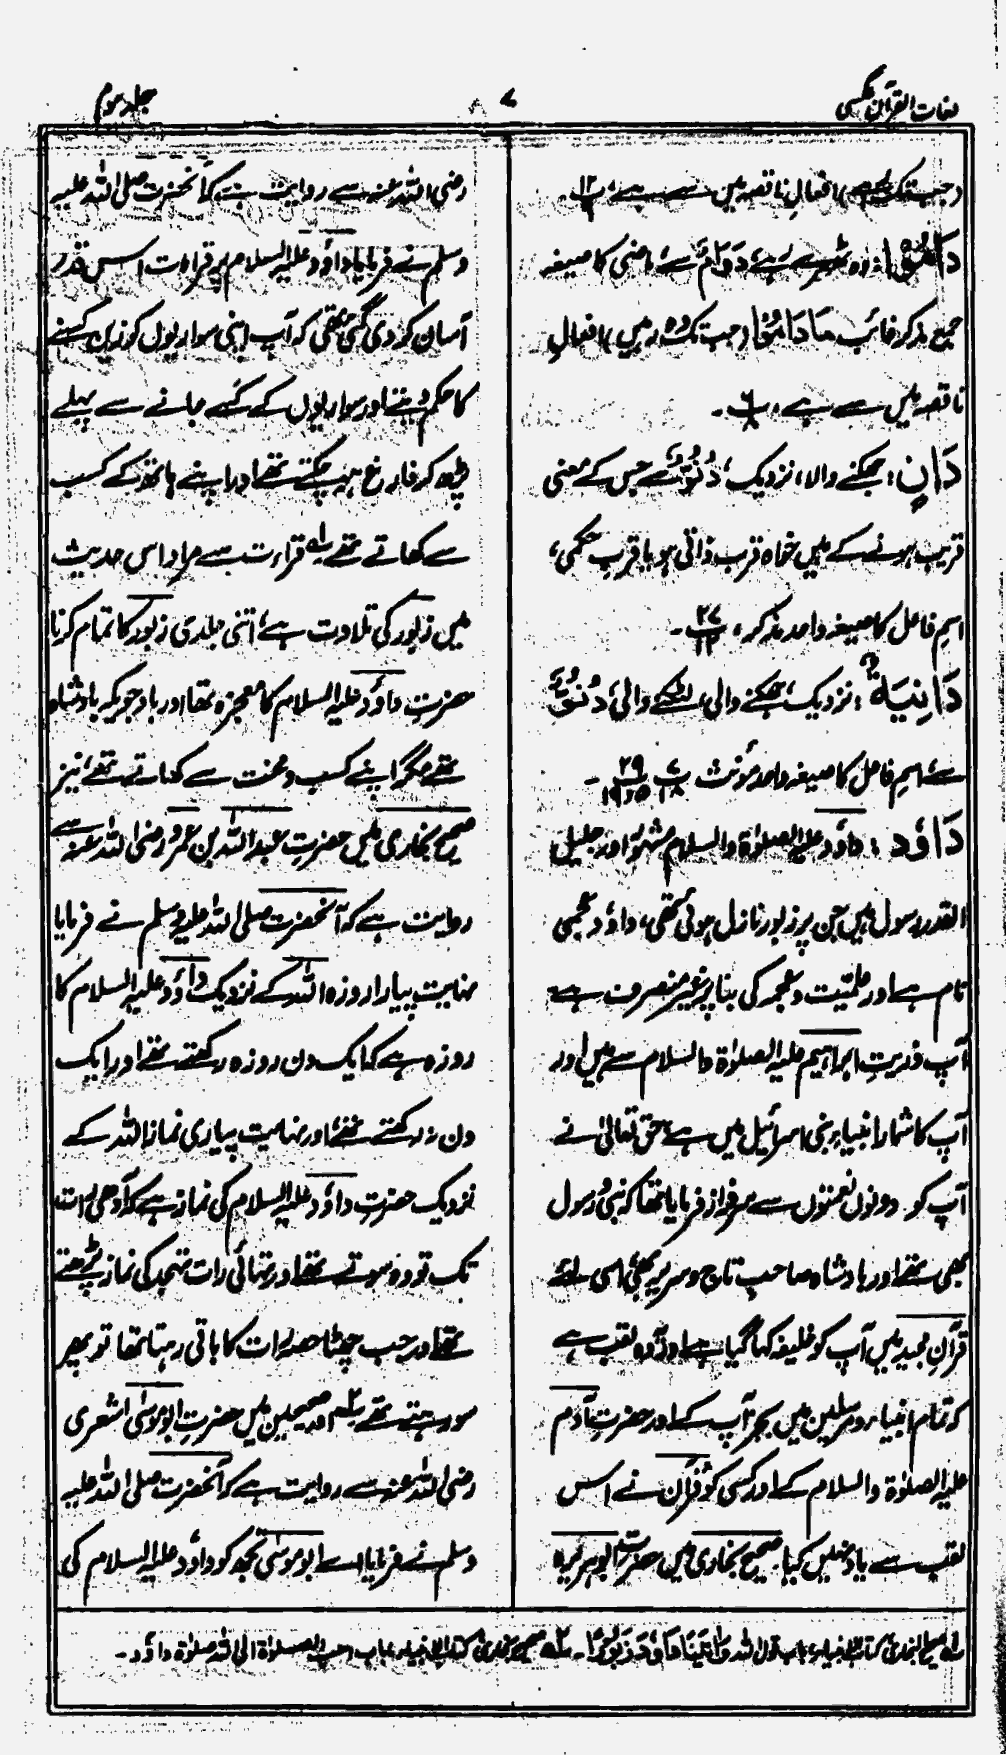 لغات القرآن عکسی
۷
جلد سوم
(جب تک تھے) افعالِ ناقصہ میں سے ہے، پ ۱۲۔
دَامُوْا: وہ ٹھہرے رہے، دَوَامٌ سے، ماضی کا صیغہ
جمع مذکر غائب مَا دَامُوْا (جب تک وہ رہیں) افعالِ
ناقصہ میں سے ہے، پ ۶۔
دَانٍ: جھکنے والا، نزدیک، دُنُوٌّ سے جس کے معنی
قریب ہونے کے ہیں خواہ قرب ذاتی ہو یا قرب حکمی،
اسمِ فاعل کا صیغہ واحد مذکر، ۲۷۔
دَانِيَةٌ: نزدیک، جھکنے والی، لٹکنے والی، دُنُوٌّ
سے، اسمِ فاعل کا صیغہ واحد مونث پ ۷ ۱۸ ۲۹ ۵ و ۱۹۔
دَاوٗد: داؤد علیہ الصلوٰۃ والسلام مشہور اور جلیل
القدر رسول ہیں جن پر زبور نازل ہوئی تھی، داؤد عجمی
نام ہے اور علمیّت و عجمہ کی بنا پر غیر منصرف ہے
آپ ذریتِ ابراہیم علیہ الصلوٰۃ والسلام سے ہیں اور
آپ کا شمار انبیاء بنی اسرائیل میں ہے، حق تعالیٰ نے
آپ کو دونوں نعمتوں سے سرفراز فرمایا تھا کہ نبی و رسول
بھی تھے اور بادشاہ صاحبِ تاج و سریر بھی، اسی لئے
قرآنِ مجید میں آپ کو خلیفہ کہا گیا ہے اور یہ وہ لقب ہے
کہ تمام انبیاء و مرسلین میں بجز آپ کے اور حضرتِ آدم
علیہ الصلوٰۃ والسلام کے اور کسی کو قرآن نے اس
لقب سے یاد نہیں کیا صحیح بخاری میں حضرت ابوہریرہ
رضی اللہ عنہ سے روایت ہے کہ آنحضرت صلی اللہ علیہ
وسلم نے فرمایا داؤد علیہ السلام پر قراءت اس قدر
آسان کر دی گئی تھی کہ آپ اپنی سواریوں کو زین کسنے
کا حکم دیتے اور سواریوں کے کسے جانے سے پہلے
پڑھ کر فارغ ہو چکتے تھے اور اپنے ہاتھ کے کسب
سے کھاتے تھے ۱؎ قراءت سے مراد اسی حدیث
میں زبور کی تلاوت ہے، اتنی جلدی زبور کا تمام کرنا
حضرتِ داؤد علیہ السلام کا معجزہ تھا اور باوجودیکہ بادشاہ
تھے مگر اپنے کسب و محنت سے کھاتے تھے، نیز
صحیح بخاری میں حضرتِ عبداللہ بن عمرو رضی اللہ عنہ سے
روایت ہے کہ آنحضرت صلی اللہ علیہ وسلم نے فرمایا
نہایت پیارا روزہ اللہ کے نزدیک داؤد علیہ السلام کا
روزہ ہے کہ ایک دن روزہ رکھتے تھے اور ایک
دن نہ رکھتے تھے، اور نہایت پیاری نماز اللہ کے
نزدیک حضرتِ داؤد علیہ السلام کی نماز ہے کہ آدھی رات
تک تو وہ سوتے تھے اور تہائی رات تہجد کی نماز پڑھتے
تھے اور جب چھٹا حصہ رات کا باقی رہتا تھا تو پھر
سو رہتے تھے ۲؎ اور صحیحین میں حضرتِ ابوموسیٰ اشعری
رضی اللہ عنہ سے روایت ہے کہ آنحضرت صلی اللہ علیہ
وسلم نے فرمایا اے ابوموسیٰ تجھ کو داؤد علیہ السلام کی
۱؎ صحیح البخاری کتاب الانبیاء، باب قول اللہ وَاٰتَيْنَا دَاوٗدَ زَبُوْرًا۔ ۲؎ صحیح بخاری، کتاب الانبیاء، باب احب الصلوٰۃ الی اللہ صلوٰۃ داؤد۔